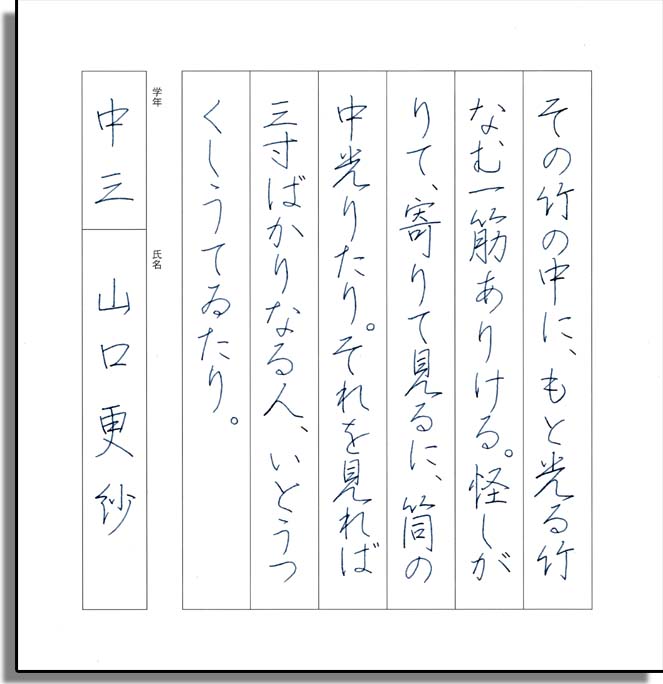 その竹の中に、もと光る竹
なむ一筋ありける。怪しが
りて、寄りて見るに、筒の
中光りたり。それを見れば
三寸ばかりなる人、いとうつ
くしうてゐたり。
学年
中三
氏名
山口更紗